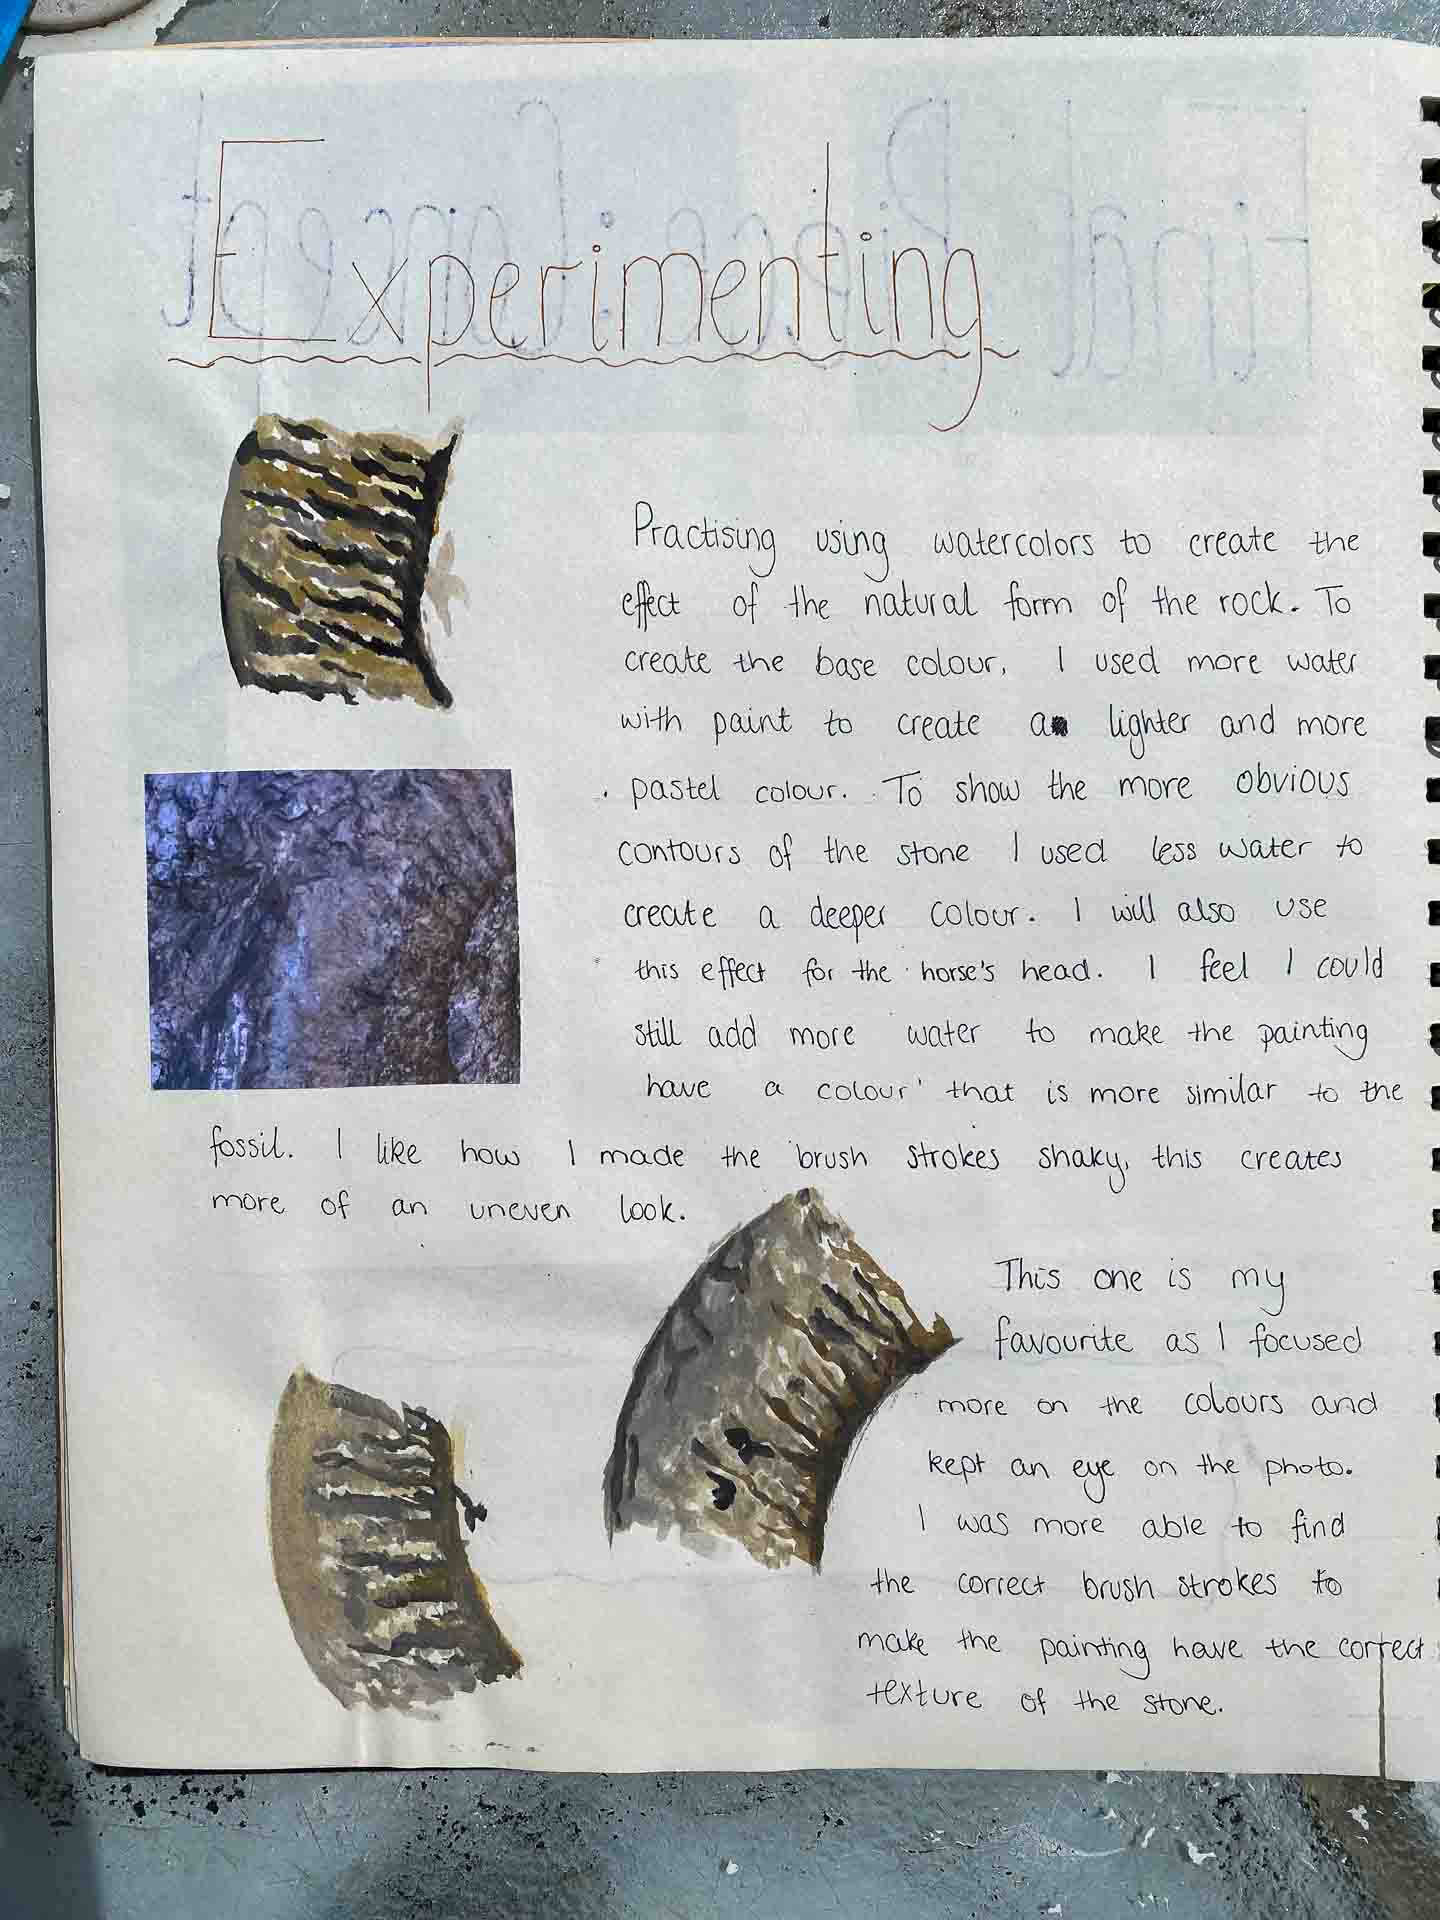 Experimenting
Practising using watercolors to create the
effect of the natural form of the rock. To
create the base colour, I used more water
with paint to create a lighter and more
pastel colour. To show the more obvious
contours of the stone I used less water to
create a deeper colour. I will also use
this effect for the horse's head. I feel I could
still add more water to make the painting
have a colour that is more similar to the
fossil. I like how I made the brush strokes shaky, this creates
more of an uneven look.
This one is my
favourite as I focused
more on the colours and
kept an eye on the photo.
I was more able to find
the correct brush strokes to
make the painting have the correct
texture of the stone.